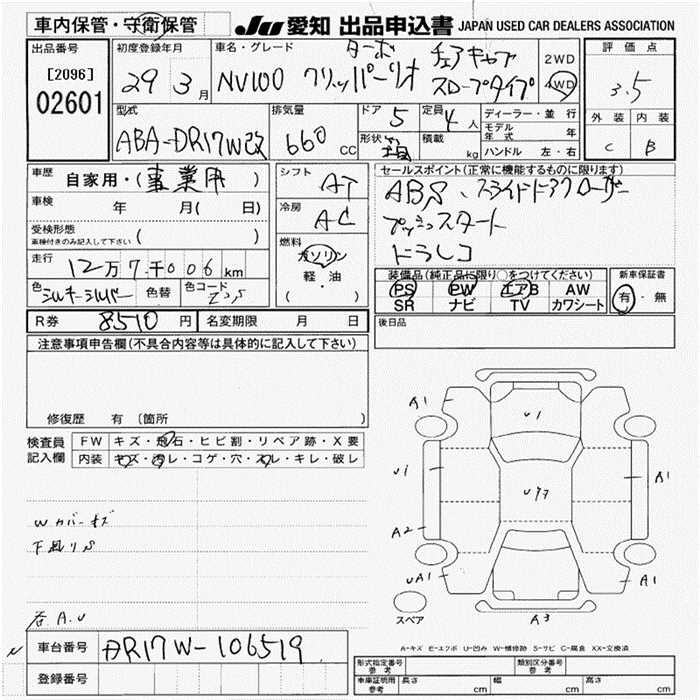 車内保管・守衛保管
JU 愛知 出品申込書 JAPAN USED CAR DEALERS ASSOCIATION
出品番号
[2096]
02601
初度登録年月
29 3月
車名・グレード
NV100 クリッパーリオ
ターボ
チェアキャブ
スロープタイプ
2WD
4WD
評価点
3.5
外装 内装
C B
型式
ABA-DR17W改
排気量
660 CC
ドア 5
定員 4人
形状
積載 kg
ディーラー・並行
モデル年式 年
ハンドル 左・右
車歴
自家用・(事業用)
車検 年 月( 日)
受検形態
車検付きのみ記入して下さい ( )
走行
12万7千006km
色 シルキーシルバー 色替
色コード Z2S
シフト AT
冷房 AC
燃料
ガソリン
軽・油
( )
セールスポイント(正常に機能するものに限ります)
ABS、スライドドアクローザー
プッシュスタート
ドラレコ
装備品(純正品に限り○をつけてください)
PS PW エアB AW
SR ナビ TV カワシート
新車保証書
有・無
R券 8510円 名変期限 月 日
後日品
注意事項申告欄(不具合内容等は具体的に記入して下さい)
修復歴 有 (箇所 )
検査員記入欄
FW キズ・飛石・ヒビ割・リペア跡・X要
内装 キズ・汚レ・コゲ・穴・スレ・キレ・破レ
Wカバーキズ
下廻りS
各A.U
A1
U1
U1
A1
A2
U43
UA1
A1
A3
スペア
A-キズ E-エクボ U-凹み W-補修跡 S-サビ C-腐食 XX-交換済
車台番号 DR17W-106519
登録番号
形式指定番号 参考
類別区分番号 参考
車庫証明用 参考 長さ cm 幅 cm 高さ cm